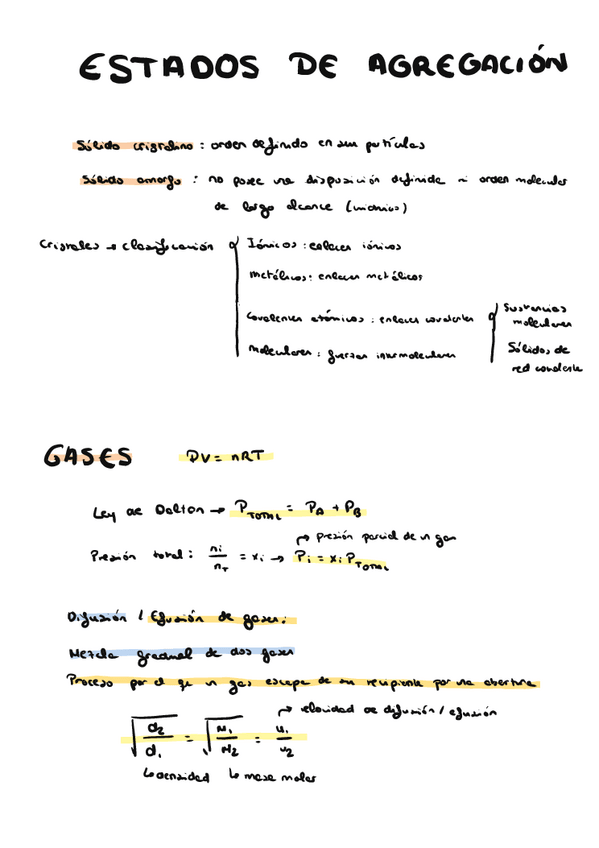 ESTADOS DE AGREGACIÓN
Sólido cristalino : orden definido en sus partículas
Sólido amorfo : no posee una disposición definida ni orden molecular
de largo alcance (vidrios)
Cristales → clasificación
Iónicos : enlaces iónicos
metálicos: enlaces metálicos
covalentes atómicos : enlaces covalentes
moleculares : fuerzas intermoleculares
Sustancias
moleculares
Sólidos de
red covalente
GASES PV = nRT
Ley de Dalton → P_TOTAL = P_A + P_B
↱ presión parcial de un gas
Presión total : n_i / n_T = x_i → P_i = x_i P_TOTAL
Difusión / Efusión de gases:
Mezcla gradual de dos gases
Proceso por el qe un gas escape de su recipiente por una abertura
↱ velocidad de difusión / efusión
√(d_2 / d_1) = √(M_1 / M_2) = u_1 / u_2
↳ densidad ↳ masa molar